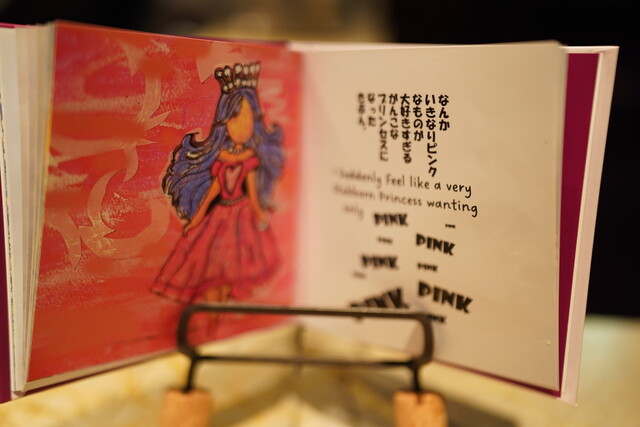 なんか
いきなりピンク
なものが
大好きすぎる
がんこな
プリンセスに
なった
きぶん。
I Suddenly feel like a very
Stubborn Princess wanting
only PINK
PINK
PINK PINK
PINK PINK